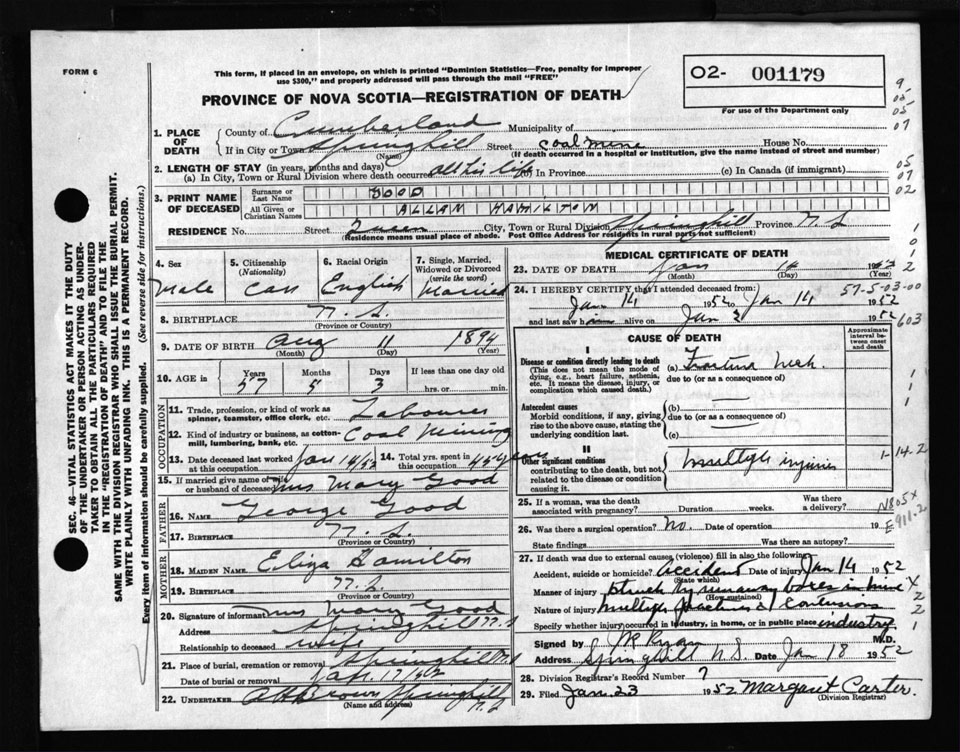 FORM 6
This form, if placed in an envelope, on which is printed "Dominion Statistics—Free, penalty for improper
use $300," and properly addressed will pass through the mail "FREE"
PROVINCE OF NOVA SCOTIA—REGISTRATION OF DEATH
02- 001179
For use of the Department only
1. PLACE OF DEATH
County of Cumberland Municipality of
If in City or Town Springhill Street coal mine House No.
(Name) (If death occurred in a hospital or institution, give the name instead of street and number)
2. LENGTH OF STAY (in years, months and days)
(a) In City, Town or Rural Division where death occurred all his life (b) In Province (c) In Canada (if immigrant)
3. PRINT NAME OF DECEASED
Surname or Last Name GOOD
All Given or Christian Names ALLAN HAMILTON
RESIDENCE No. Street Queen City, Town or Rural Division Springhill Province N.S.
(Residence means usual place of abode. Post Office Address for residents in rural parts not sufficient)
4. Sex Male
5. Citizenship (Nationality) Can
6. Racial Origin English
7. Single, Married, Widowed or Divorced (write the word) Married
8. BIRTHPLACE N.S.
(Province or Country)
9. DATE OF BIRTH Aug 11 1894
(Month) (Day) (Year)
10. AGE in Years Months Days If less than one day old
57 5 3 hrs. or min.
OCCUPATION
11. Trade, profession, or kind of work as spinner, teamster, office clerk, etc. Labourer
12. Kind of industry or business, as cotton-mill, lumbering, bank, etc. Coal Mining
13. Date deceased last worked at this occupation Jan 14/52
14. Total yrs. spent in this occupation 45 years
15. If married give name of wife or husband of deceased Mrs Mary Good
FATHER
16. NAME George Good
17. BIRTHPLACE N.S.
(Province or Country)
MOTHER
18. MAIDEN NAME Eliza Hamilton
19. BIRTHPLACE N.S.
(Province or Country)
20. Signature of informant Mrs Mary Good
Address Springhill N.S
Relationship to deceased wife
21. Place of burial, cremation or removal Springhill N.S
Date of burial or removal Jan. 17/1952
22. UNDERTAKER A H Brown Springhill N.S
(Name and address)
MEDICAL CERTIFICATE OF DEATH
23. DATE OF DEATH Jan 14 1952
(Month) (Day)
24. I HEREBY CERTIFY that I attended deceased from: 57-5-03-00
Jan 14 1952 to Jan 14 1952
and last saw him alive on Jan 2 1952
603
CAUSE OF DEATH
Approximate interval between onset and death
I
Disease or condition directly leading to death
(This does not mean the mode of dying, e.g., heart failure, asthenia, etc. It means the disease, injury, or complication which caused death.)
(a) Fractured Neck
due to (or as a consequence of)
Antecedent causes
Morbid conditions, if any, giving rise to the above cause, stating the underlying condition last.
(b)
due to (or as a consequence of)
(c)
II
Other significant conditions
contributing to the death, but not related to the disease or condition causing it.
multiple injuries
1-14-2
25. If a woman, was the death associated with pregnancy? Duration weeks. Was there a delivery?
N805x
E911-2
26. Was there a surgical operation? No. Date of operation 19
State findings Was there an autopsy?
27. If death was due to external causes (violence) fill in also the following:
Accident, suicide or homicide? Accident Date of injury Jan 14 1952
(State which)
Manner of injury Struck by runaway boxes in mine
(How sustained)
Nature of injury multiple fractures & contusions
Specify whether injury occurred in industry, in home, or in public place industry
Signed by Ryan M.D.
Address Springhill N.S. Date Jan 18 1952
28. Division Registrar's Record Number 7
29. Filed Jan. 23 1952 Margaret Carter.
(Division Registrar)
SEC. 46—VITAL STATISTICS ACT MAKES IT THE DUTY
OF THE UNDERTAKER OR PERSON ACTING AS UNDER-
TAKER TO OBTAIN ALL THE PARTICULARS REQUIRED
IN THE "REGISTRATION OF DEATH" AND TO FILE THE
SAME WITH THE DIVISION REGISTRAR WHO SHALL ISSUE THE BURIAL PERMIT.
WRITE PLAINLY WITH UNFADING INK. THIS IS A PERMANENT RECORD.
Every item of information should be carefully supplied. (See reverse side for instructions.)